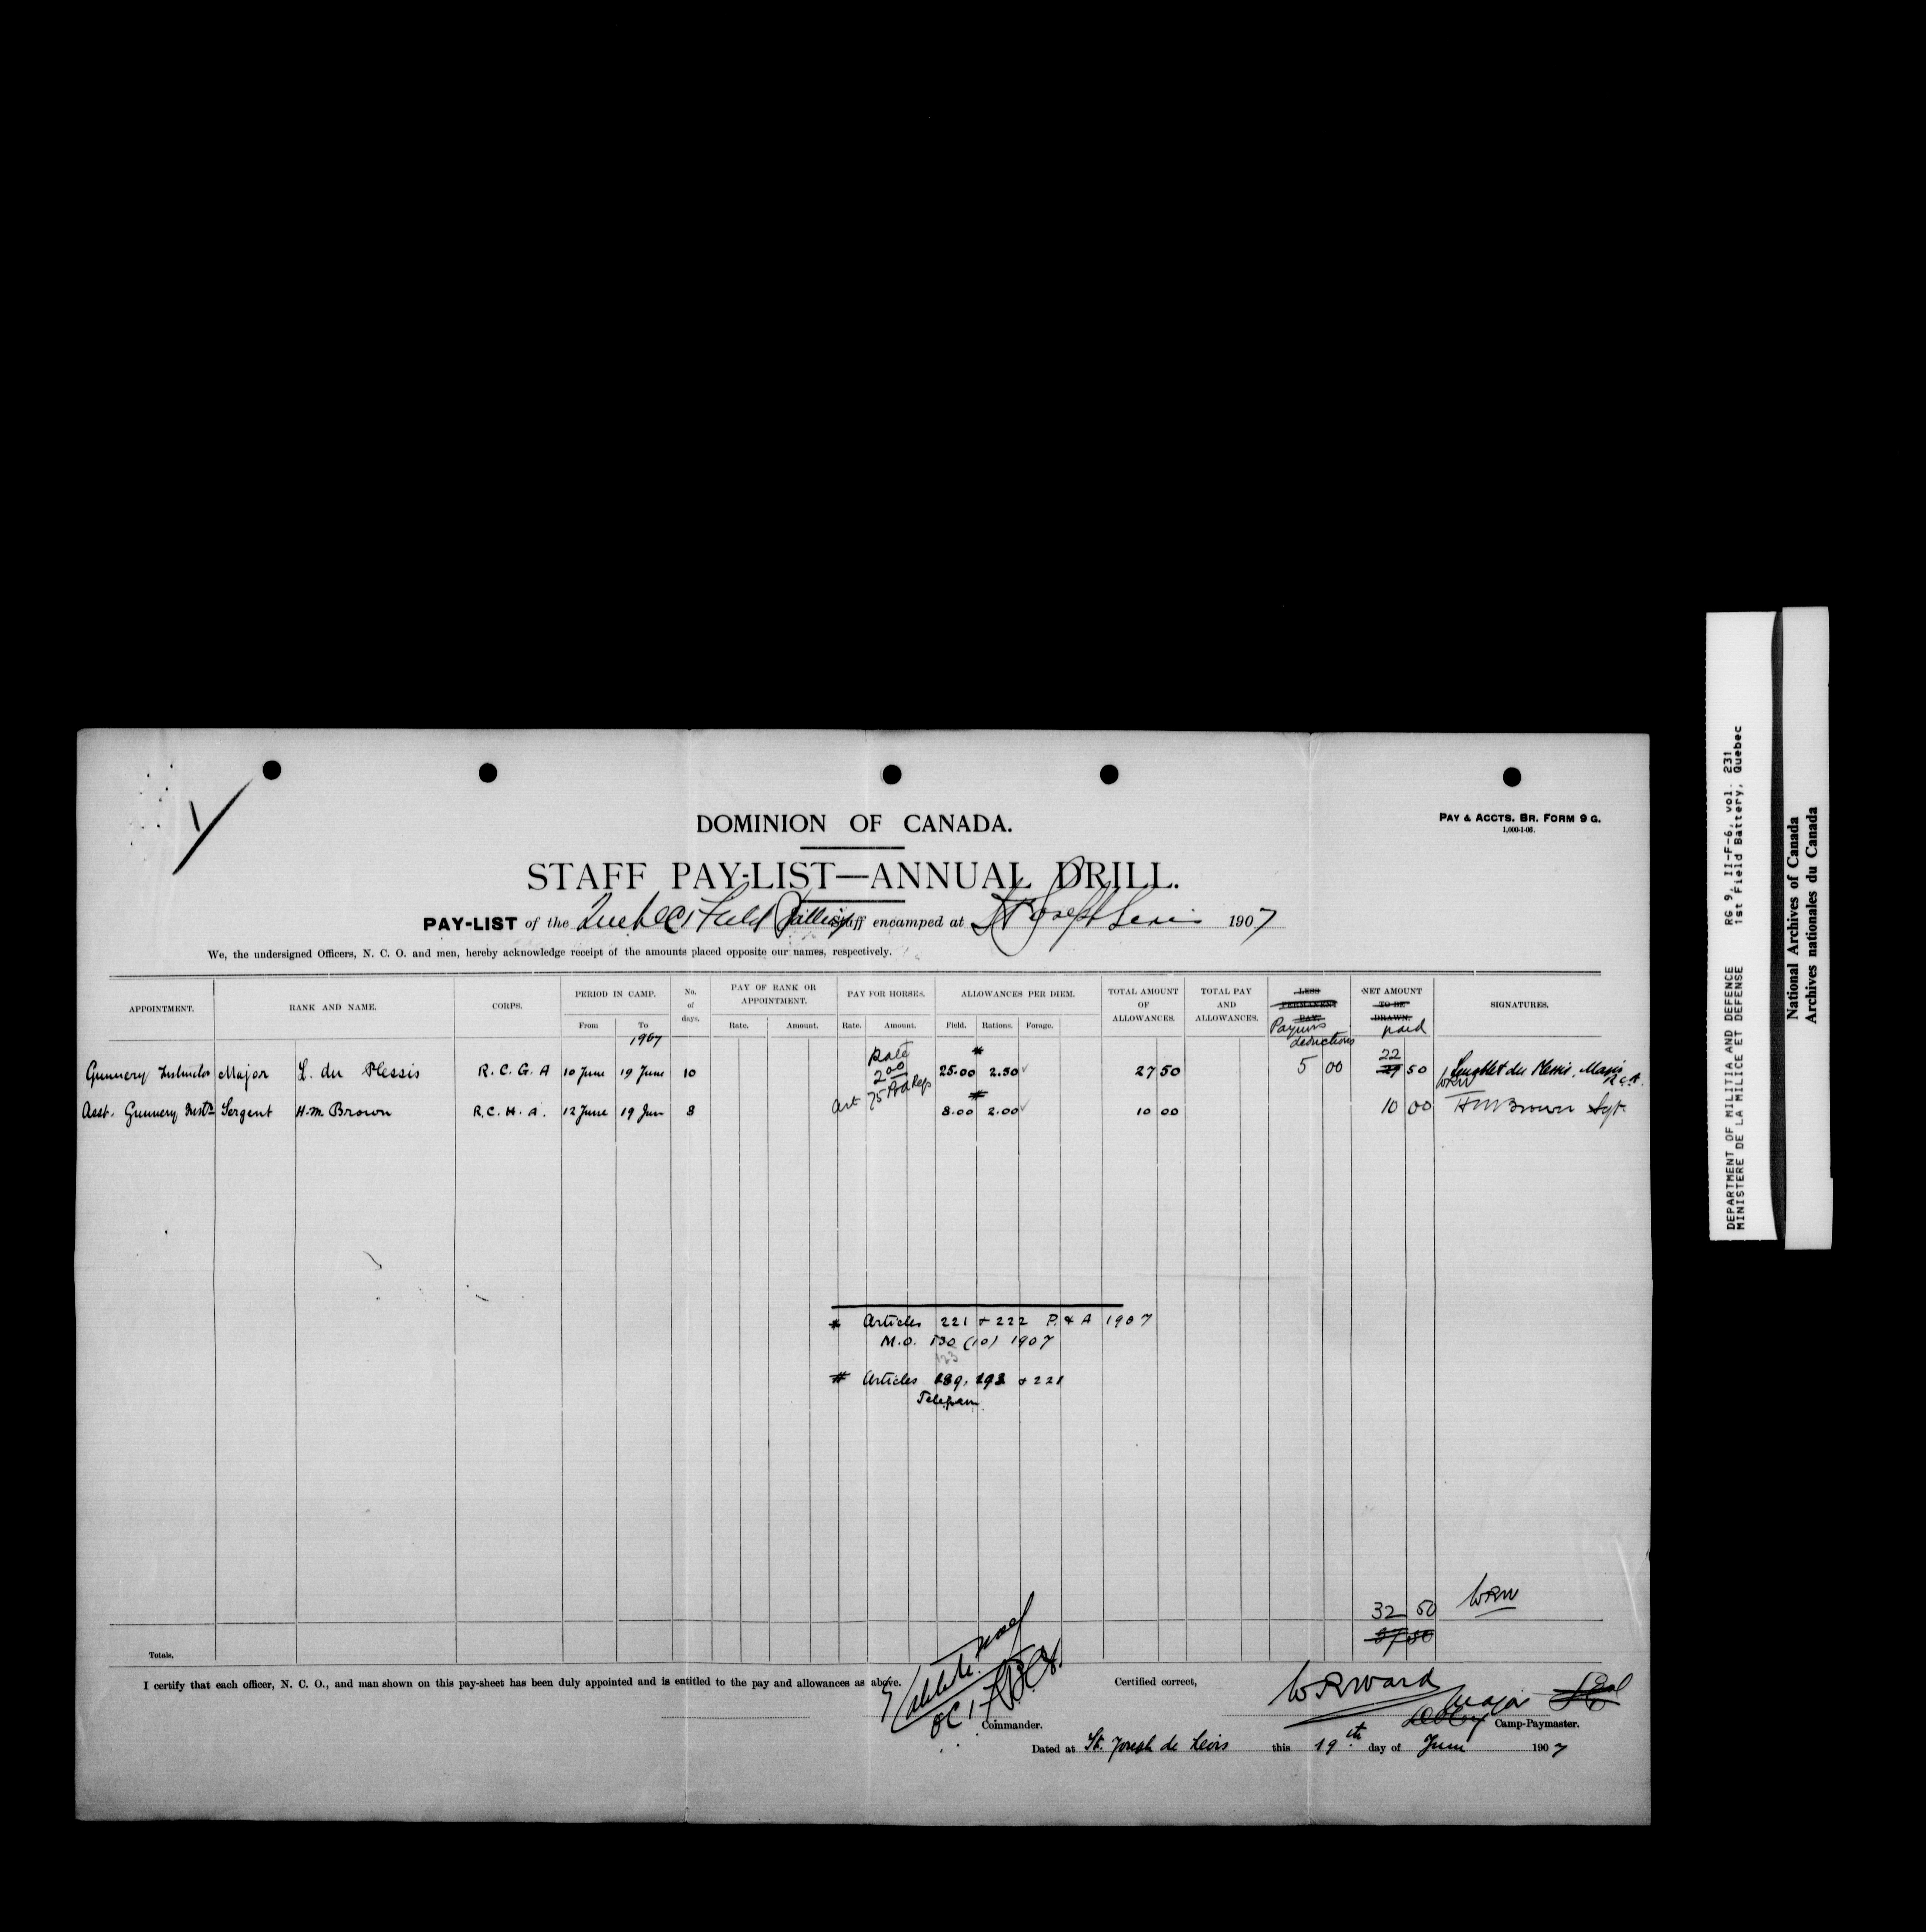 DOMINION OF CANADA.
PAY & ACCTS. BR. FORM 9 G.
1,000-1-06.
STAFF PAY-LIST—ANNUAL DRILL.
PAY-LIST of the Quebec Field Battery Staff encamped at St Joseph Levis 1907
We, the undersigned Officers, N. C. O. and men, hereby acknowledge receipt of the amounts placed opposite our names, respectively.
APPOINTMENT. RANK AND NAME. CORPS. PERIOD IN CAMP. From To 1907 No. of days. PAY OF RANK OR APPOINTMENT. Rate. Amount. PAY FOR HORSES. Rate. Amount. ALLOWANCES PER DIEM. Field. Rations. Forage. TOTAL AMOUNT OF ALLOWANCES. TOTAL PAY AND ALLOWANCES. LESS PERMANENT PAY. Paymrs deductions NET AMOUNT TO BE DRAWN. paid SIGNATURES.
Rate
2 00
Gunnery Instructor Major L. du Plessis R. C. G. A 10 June 19 June 10 25.00 2.50 27 50 5 00 22 50 du Plessis, Major R.C.A.
WRW
Art 75
Asst. Gunnery Instr Sergent H. M Brown R. C. H. A. 12 June 19 Jun 8 8.00 2.00 10 00 10 00 HM Brown Sgt.
* Articles 221 + 222 P. & A 1907
M.O. 130 (10) 1907
123
# Articles 189, 192 + 221
Telegram
32 50 WRW
37 50
Totals.
I certify that each officer, N. C. O., and man shown on this pay-sheet has been duly appointed and is entitled to the pay and allowances as above.
Certified correct,
WRWard
Major
OC 1
Commander.
Camp-Paymaster.
Dated at St. Joseph de Levis this 19th day of June 1907
DEPARTMENT OF MILITIA AND DEFENCE RG 9, II-F-6, vol. 231
MINISTERE DE LA MILICE ET DEFENSE 1st Field Battery, Quebec
National Archives of Canada
Archives nationales du Canada